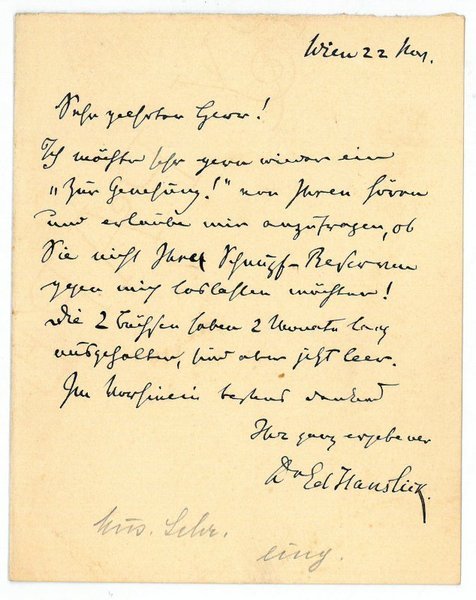 Wien 22 Nov.
Sehr geehrter Herr!
Ich möchte sehr gern wieder ein
"Zur Genesung!" von Ihnen hören
und erlaube mir anzufragen, ob
Sie nicht Ihre Schnupf-Reserven
gegen mich loslassen möchten!
Die 2 Büchsen haben 2 Monate lang
ausgehalten, sind aber jetzt leer.
Im Vorhinein bestens dankend
Ihr ganz ergebener
Dr Ed Hanslick.
Mus. Schr.